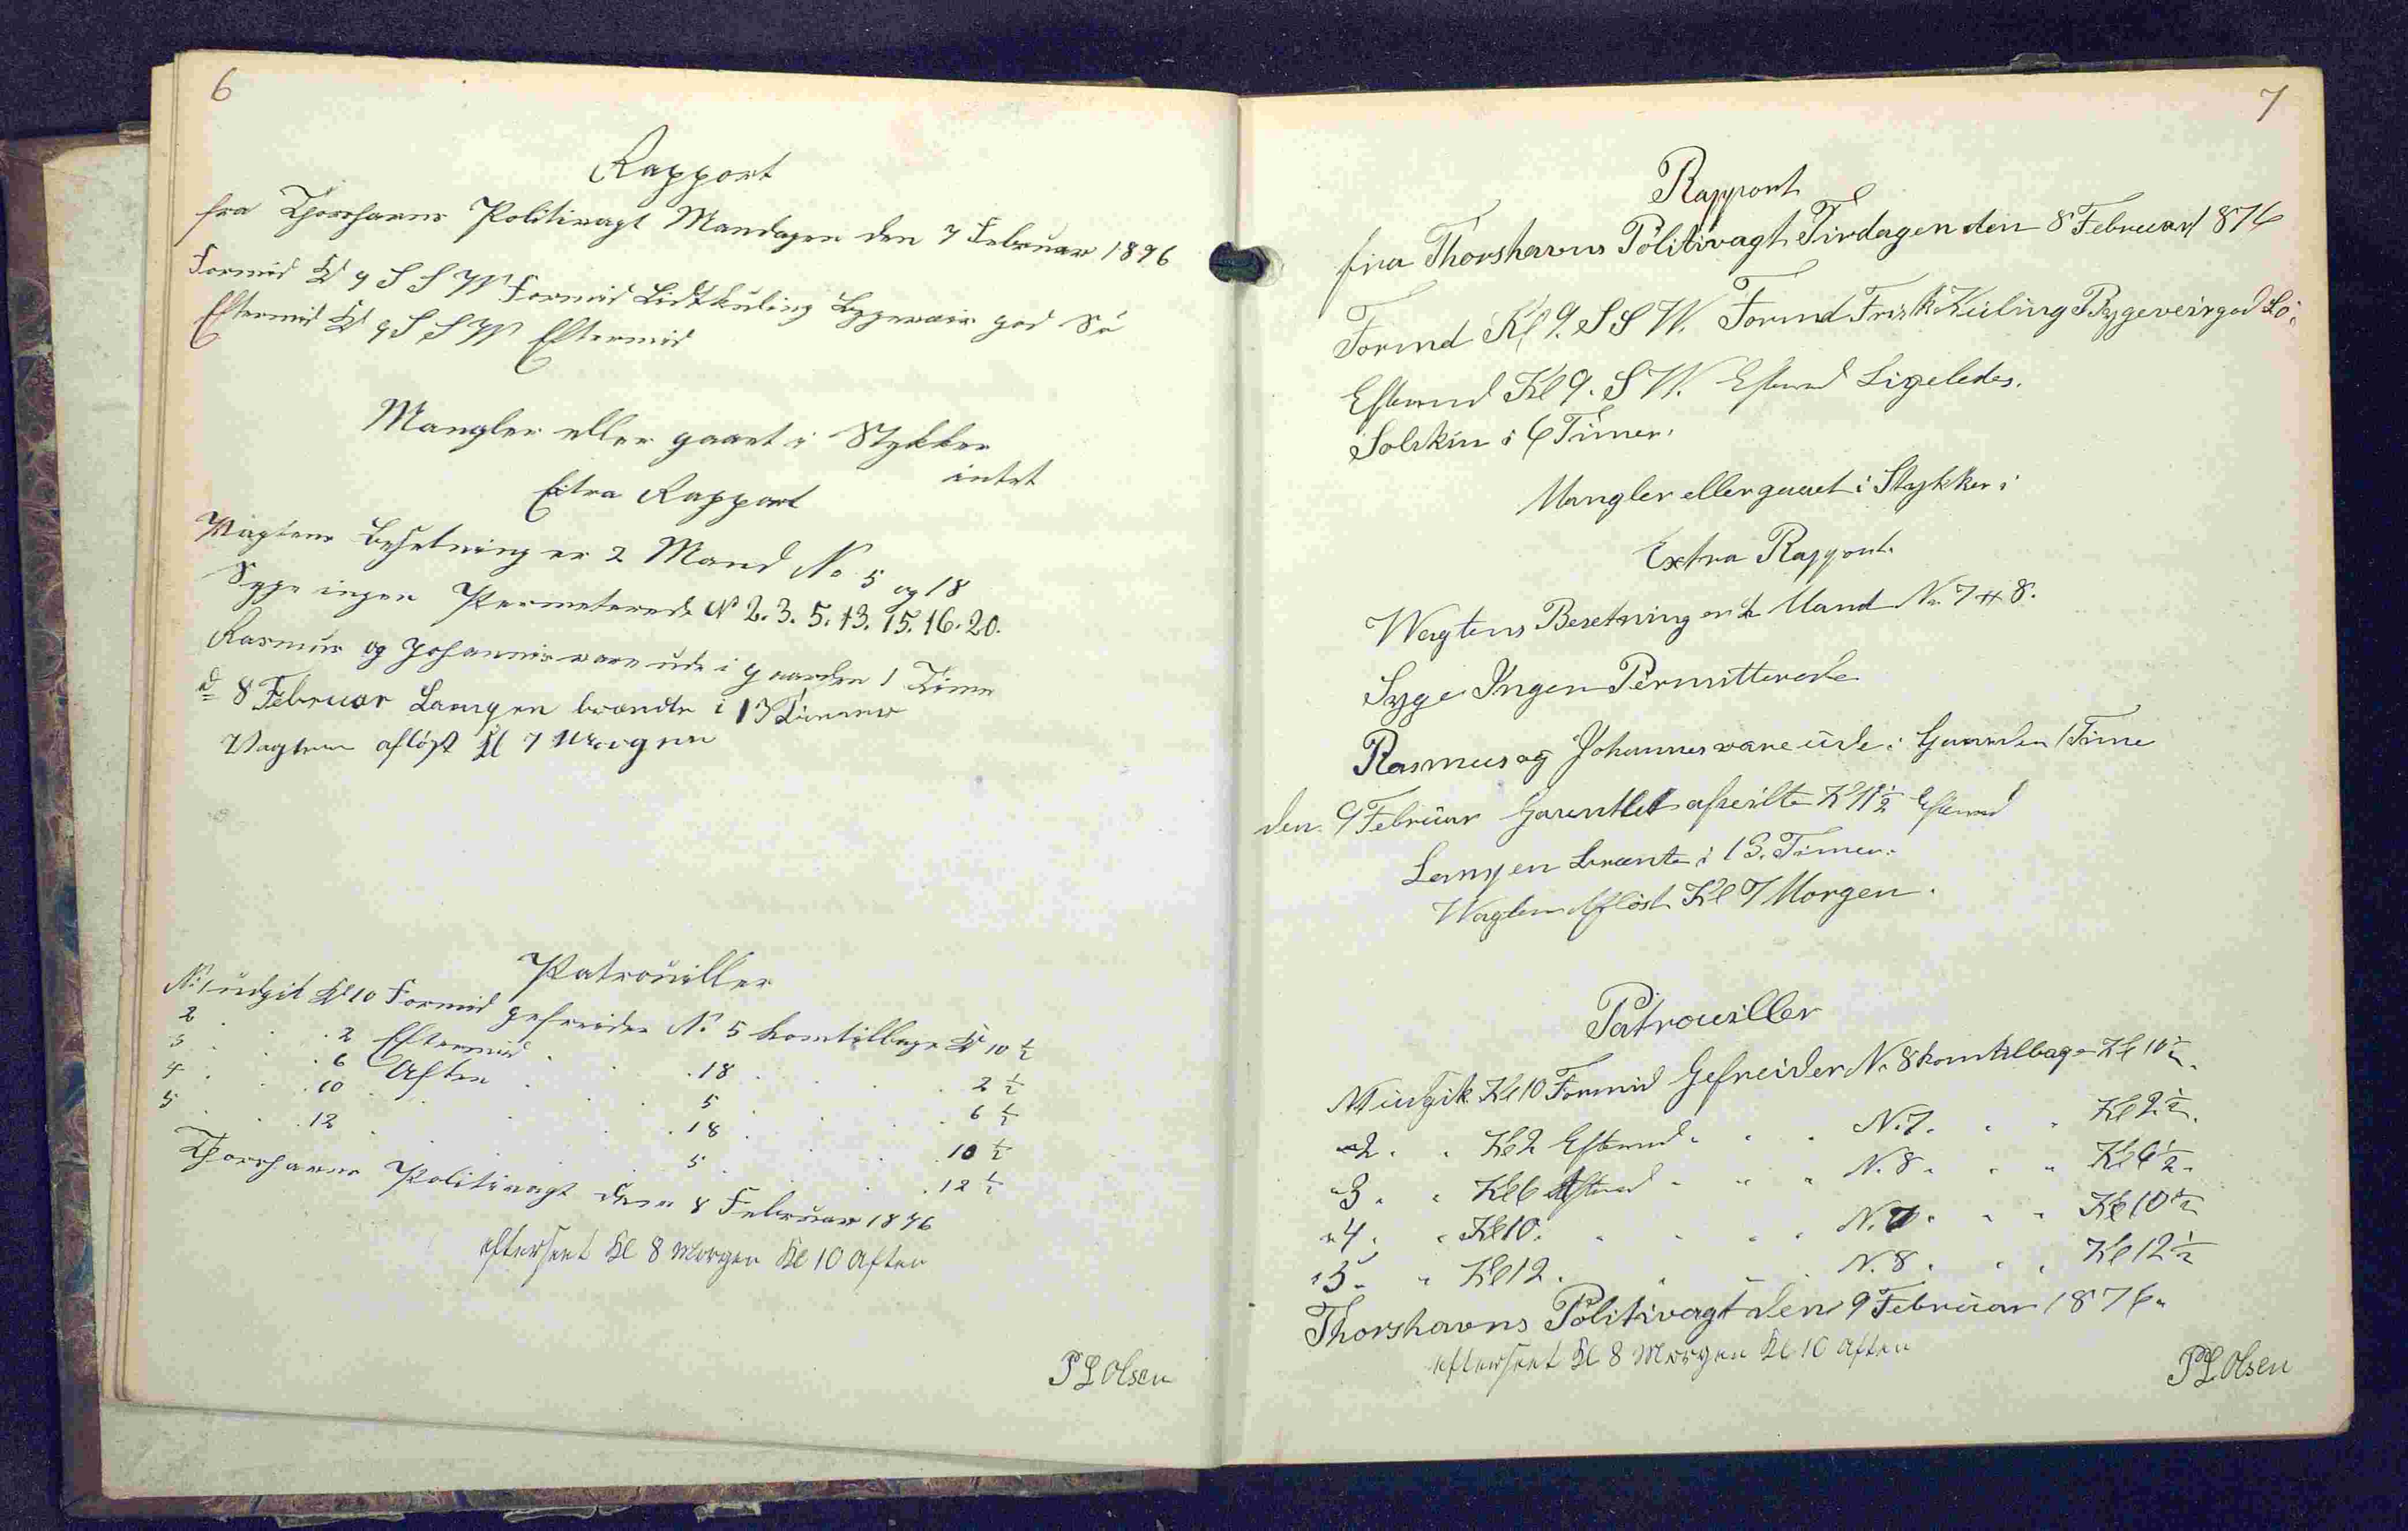 6
Rapport
fra Thorshavns Politivagt Mandagen den 7 Februar 1876
Formid Kl 9 S S W Formid Lidt kuling Bygeveir god Sö
Eftermid Kl 9 S S W Eftermid
Mangler eller gaaet i Stykker
intet
Extra Rapport
Vagtens Besetning er 2 Mand No 5 og 18
Syge ingen Permeterede No 2. 3. 5. 13. 15. 16. 20.
Rasmus og Johannis vare ude i gaarden 1 Time
d 8 Februar Lampen brændte i 13 Timer
Vagten aflöst Kl 7 Morgen
Patrouiller
No 1 udgik Kl 10 Formid gefreider No 5 kom tilbage Kl 10 ½
2 . . . 2 Eftermid . . . 18 . . . 2 ½
3 . . . 6 Aften . . . 5 . . . 6 ½
4 . . . 10 . . . 18 . . . 10 ½
5 . . . 12 . . . 5 . . . 12 ½
Thorshavns Politivagt den 8 Februar 1876
efterseet Kl 8 Morgen Kl 10 Aften
P L Olsen
7
Rapport
fra Thorshavns Politivagt Tirdagen den 8 Februar 1876
Formd Kl 9. S S W. Formd Frisk Kuling Bygeveir god Sö.
Eftermd Kl 9. S W. Eftermd Ligeledes.
Solskin i 6 Timer.
Mangler eller gaaet i Stykker i
Extra Rapport.
Wagtens Besetning er 2 Mand No 7 + 8.
Syge Ingen Permitterede
Rasmus og Johannes vare ude i Gaarden 1 Time
den 9 Februar afseilte Kl 11½ Eftermd
Lampen brænte i 13. Timer.
Wagten Aflöst Kl 7 Morgen.
Patrouiller
No 1 udgik Kl 10 Formid Gefreider No 8 kom tilbage Kl 10 ½.
" 2 . " Kl 2 Eftermd . . . No 7. . . Kl 2 ½.
" 3 . " Kl 6 Aftend . . . No 8 . . . Kl 6 ½.
" 4 . " Kl 10. . . . No 7 . . . Kl 10 ½
" 5 . " Kl 12. . . . No 8 . . . Kl 12 ½
Thorshavns Politivagt den 9 Februar 1876.
efterseet Kl 8 Morgen Kl 10 Aften
P L Olsen